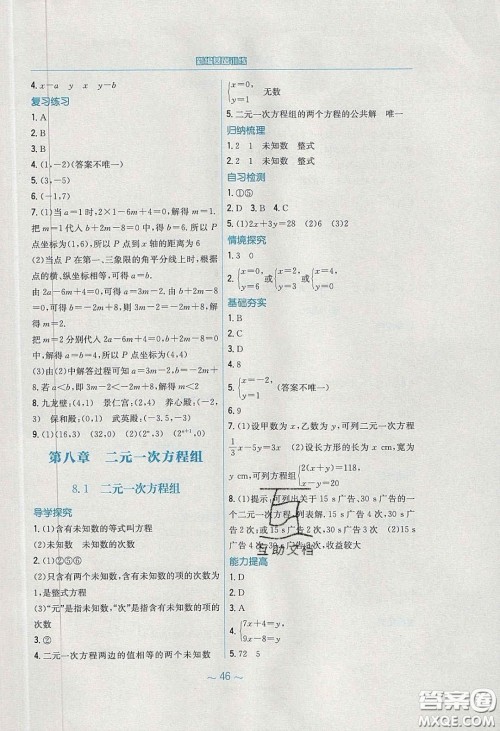 新编基础训练
4. x-a y x y-b
复习练习
1. A
2. B
3. A
4. (1,-2)(答案不唯一)
5. (-3,1)
6. (-1,7)
7. (1)当a=1时,2×1-6m+4=0,解得m=1.
把m=1代入b+2m-8=0中,得b=6.所以P
点坐标为(1,6),所以P点到x轴的距离为6
(2)当点P在第一、三象限的角平分线上时,根据
点的横、纵坐标相等,可得a=b.
由2a-6m+4=0,可得a=3m-2.
由b+2m-8=0,可得b=-2m+8.
则3m-2=-2m+8,
解得m=2.
把m=2分别代入2a-6m+4=0,b+2m-8=0
中,解得a=b=4,所以P点坐标为(4,4)
(3)由(2)中解答过程可知a=3m-2,b=-2m+
8.若a<b,即3m-2<-2m+8,解得m<2
8. 九龙壁; 景仁宫:(4,2) 养心殿:(-2,3)
; 保和殿; 武英殿:(-3.5,-3)
9. (1)(16,3) (32,0) (2)(2ⁿ,3) (2ⁿ⁺¹,0)
第八章 二元一次方程组
8.1 二元一次方程组
导学探究
1. (1)含有未知数的等式叫方程
(2)未知数 未知数的次数
2. (1)①②⑤
(2)只有两个未知数,含有未知数的项的次数为1
且是整式方程
(3)“元”是指未知数,“次”是指含有未知数的项的
次数
3. ②
4. 二元一次方程两边的值相等的两个未知数
{x=0, y=1 无数
5. 二元一次方程组的两个方程的公共解 唯一
归纳梳理
1. 2 1 未知数 整式
2. 2 1 未知数 整式
自习检测
1. ①⑤
2. D 3. B 4. C
5. (1)2x+3y=28 (2)5
情境探究
1. 3 0
2. {x=0, y=6 或{x=1, y=3 或{x=2, y=0
基础夯实
1. B
2. B
3. D
4. D
5. {x=-2, y=1 (答案不唯一)
6. 9
7. (1)设甲数为x,乙数为y,可列二元一次方程
1/3x-5y=3x (2)设长方形的长为x cm,宽为
y cm,可列方程组{2(x+y)=118, x-y=20
8. (1)提示:可列出关于15 s广告、30 s广告的一
个二元一次方程,列表讨解.15 s广告4次,30 s广告
2次;或15 s广告2次,30 s广告3次 (2)15 s广
告4次,30 s广告2次时,收益较大
能力提高
1. D
2. D
3. A
4. {7x+4=y, 9x-8=y
5. 72 5
～46～
互助文档
答案圈
MXQE.COM